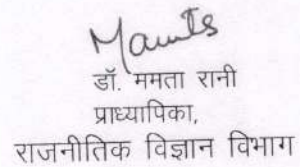 Mamta
डॉ. ममता रानी
प्राध्यापिका,
राजनीतिक विज्ञान विभाग